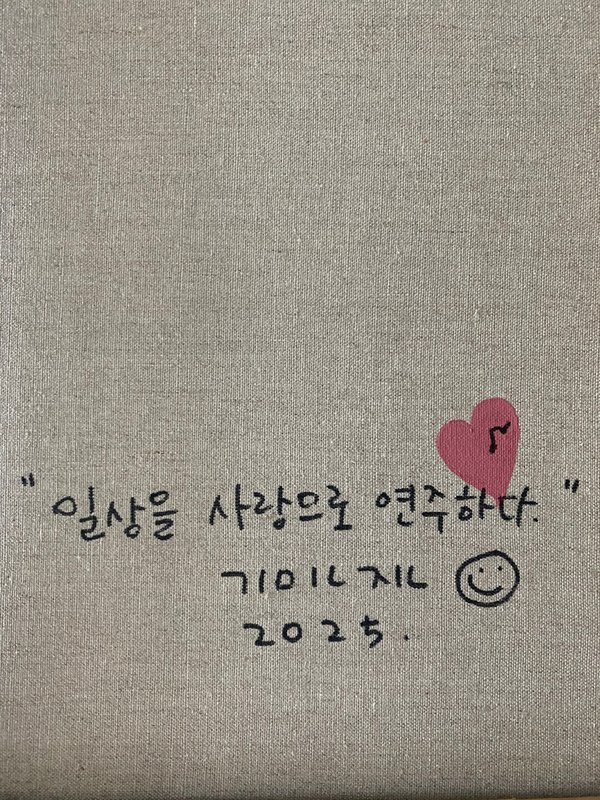 "일상을 사랑으로 연주하다."
ㄱㅣㅁㅣㄴ ㅈㅣㄴ
2025.